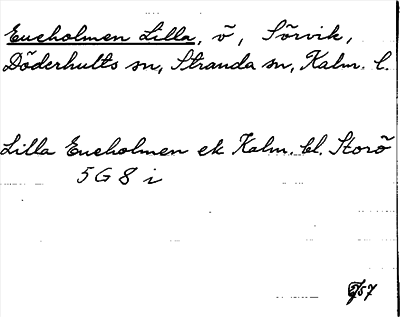 Eneholmen Lilla, ö, Sörvik,
Döderhults sn, Stranda sn, Kalm. l.
Lilla Eneholmen ek Kalm. bl. Storö
5 G 8 i
57